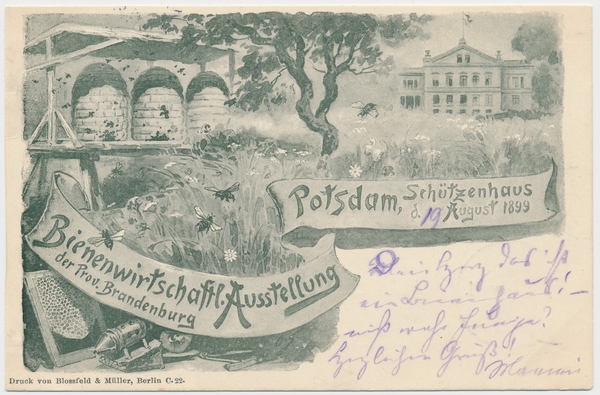 Potsdam, Schützenhaus
d. 19 August 1899
Bienenwirtschaftl. Ausstellung
der Prov. Brandenburg
das ist
ein
Junge?
Herzlichen Gruß!
Druck von Blossfeld & Müller, Berlin C-22-